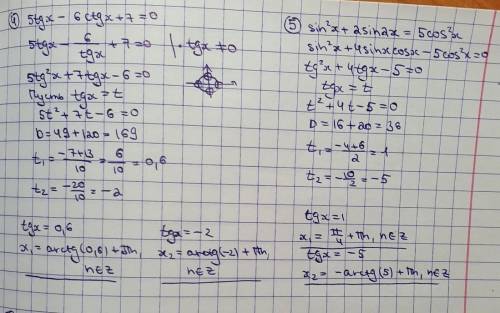 ④ 5tgx - 6ctgx + 7 = 0
5tgx - 6/tgx + 7 = 0 | · tgx ≠ 0
5tg²x + 7tgx - 6 = 0
Пусть tgx = t
5t² + 7t - 6 = 0
D = 49 + 120 = 169
t₁ = (-7+13)/10 = 6/10 = 0,6
t₂ = -20/10 = -2
tgx = 0,6
x₁ = arctg(0,6) + πn,
n∈Z
tgx = -2
x₂ = arctg(-2) + πn,
n∈Z
⑤ sin²x + 2sin2x = 5cos²x
sin²x + 4sinxcosx - 5cos²x = 0
tg²x + 4tgx - 5 = 0
tgx = t
t² + 4t - 5 = 0
D = 16 + 20 = 36
t₁ = (-4+6)/2 = 1
t₂ = -10/2 = -5
tgx = 1
x₁ = π/4 + πn, n∈Z
tgx = -5
x₂ = -arctg(5) + πn, n∈Z